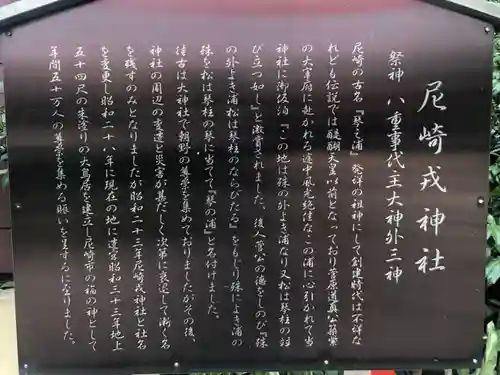 尼崎戎神社
祭神 八重事代主大神外三神
尼崎の古名『琴之浦』発祥の祖神にして創建時代は不詳な
れども伝説では醍醐天皇以前となっており菅原道真公築紫
の大軍府に赴かれる途中風光絶佳なこの浦に心引かれて当
神社に御仮泊「この地は殊の外よき浦なり又松は琴柱の如
び立つ如し」と激賞されました。後人菅公の徳をしのび『殊
の外よき浦松は琴柱のならびたる』をもじり殊によき浦の
殊を松は琴柱の琴に当てて『琴の浦』と名付けました。
往古は大神社で朝野の篤崇を集めておりましたがその後、
神社の周辺の変遷と災害が甚だしく次第に衰退して漸く名
を残すのみとなりましたが昭和二十三年尼崎戎神社と社名
を変更し昭和二十八年に現在の地に遷宮昭和三十三年地上
五十四尺の朱塗りの大鳥居を建立し尼崎市の福の神として
年間五十万人の篤崇を集める賑いを呈するになりました。